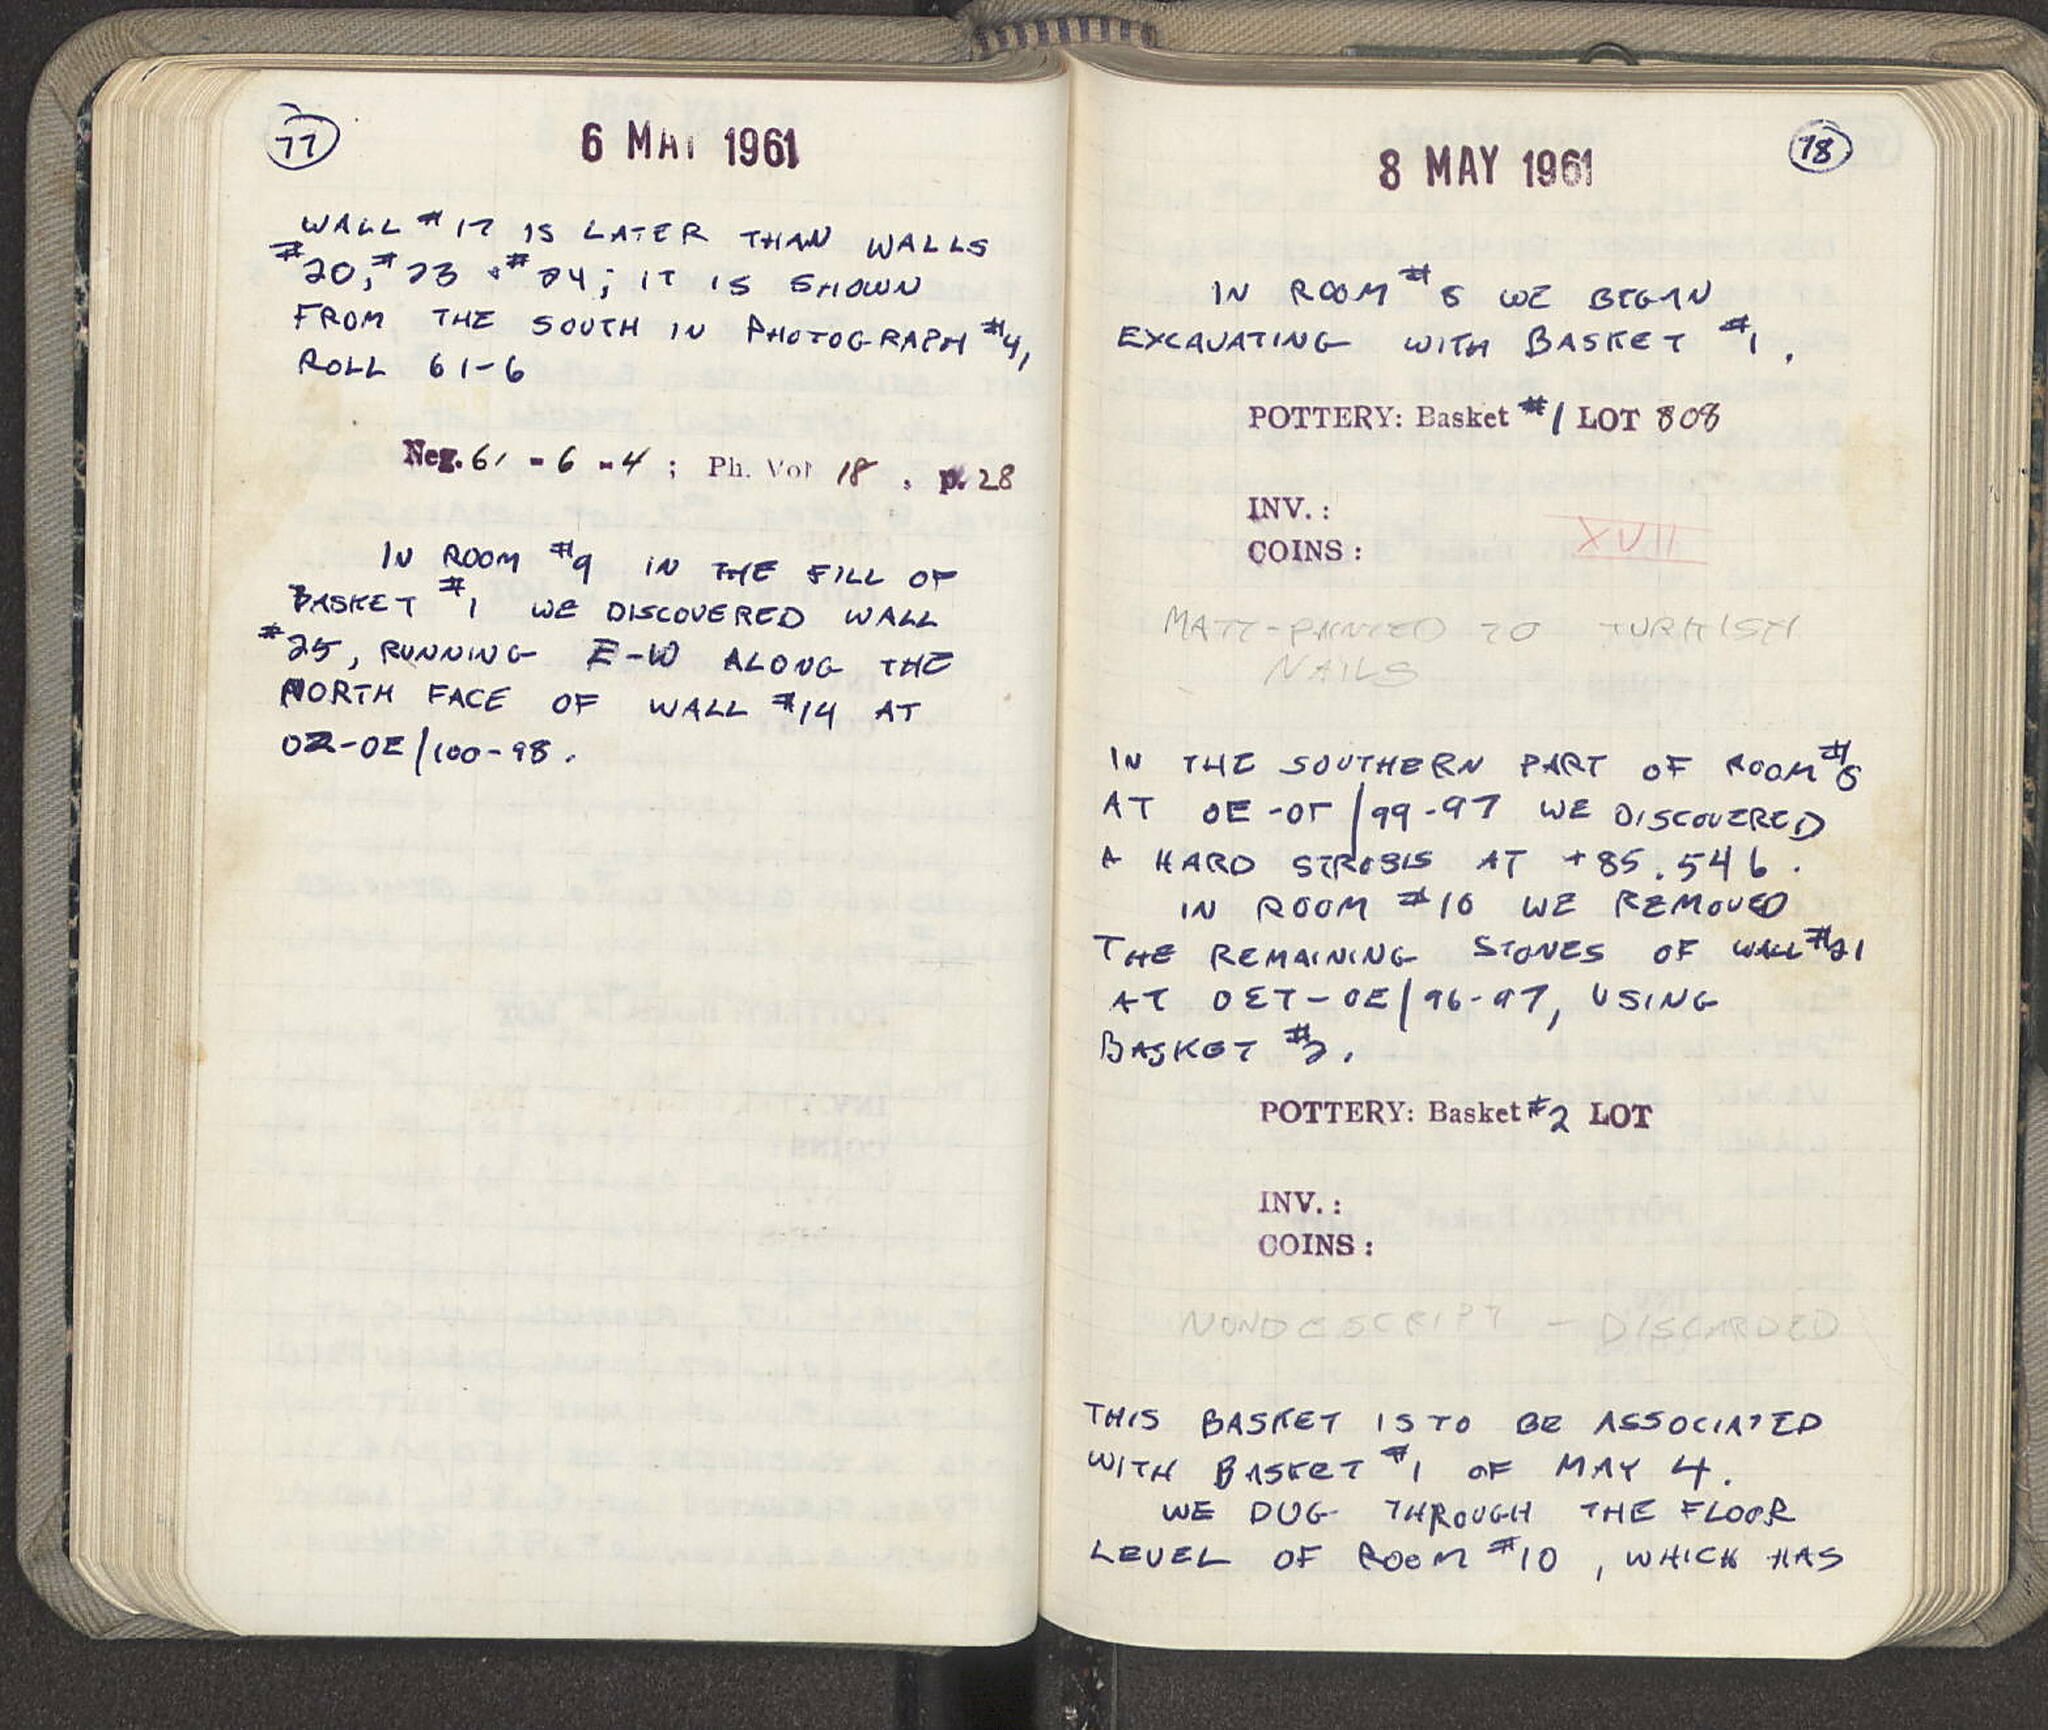 77
6 MAY 1961
WALL #17 IS LATER THAN WALLS
#20, #23 & #24; IT IS SHOWN
FROM THE SOUTH IN PHOTOGRAPH #4,
ROLL 61-6
Neg. 61 - 6 - 4 ; Ph. Vol 18 , p. 28
IN ROOM #9 IN THE FILL OF
BASKET #1 WE DISCOVERED WALL
#25, RUNNING E-W ALONG THE
NORTH FACE OF WALL #14 AT
OZ-OE/100-98.
78
8 MAY 1961
IN ROOM #8 WE BEGAN
EXCAVATING WITH BASKET #1.
POTTERY: Basket #1 LOT 808
INV.:
COINS:
XVII
MATT-PAINTED TO TURKISH
NAILS
IN THE SOUTHERN PART OF ROOM #8
AT OE-OΓ/99-97 WE DISCOVERED
A HARD STROSIS AT +85.546.
IN ROOM #10 WE REMOVED
THE REMAINING STONES OF WALL #21
AT OΣT-OE/96-97, USING
BASKET #2.
POTTERY: Basket #2 LOT
INV.:
COINS:
NONDESCRIPT - DISCARDED
THIS BASKET IS TO BE ASSOCIATED
WITH BASKET #1 OF MAY 4.
WE DUG THROUGH THE FLOOR
LEVEL OF ROOM #10, WHICH HAS